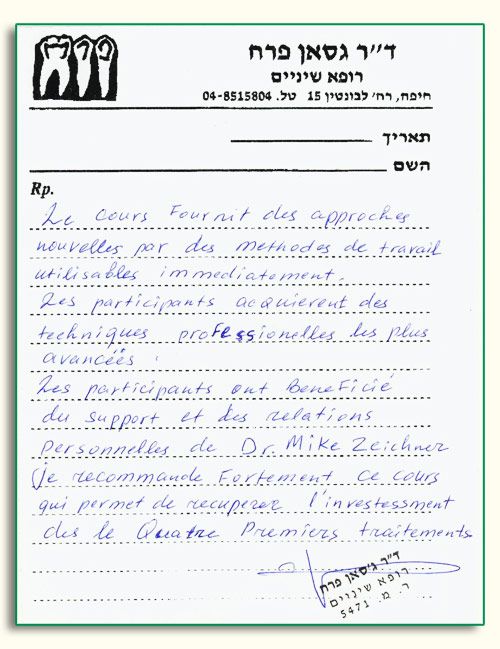 ד"ר גסאן פרח
רופא שיניים
חיפה, רח' לבונטין 15 טל. 04-8515804
תאריך
השם
Rp.
Le cours Fournit des approches
nouvelles par des methodes de travail
utilisables immediatement.
Les participants acquierent des
techniques professionelles les plus
avancéés.
Les participants ont Beneficié
du support et des relations
Personnelles de Dr. Mike Zeichner
je recommande Fortement ce cours
qui permet de recuperer l'investessment
des le Quatre Premiers traitements
ד"ר ג'סאן פרח
רופא שיניים
ר. מ. 5471